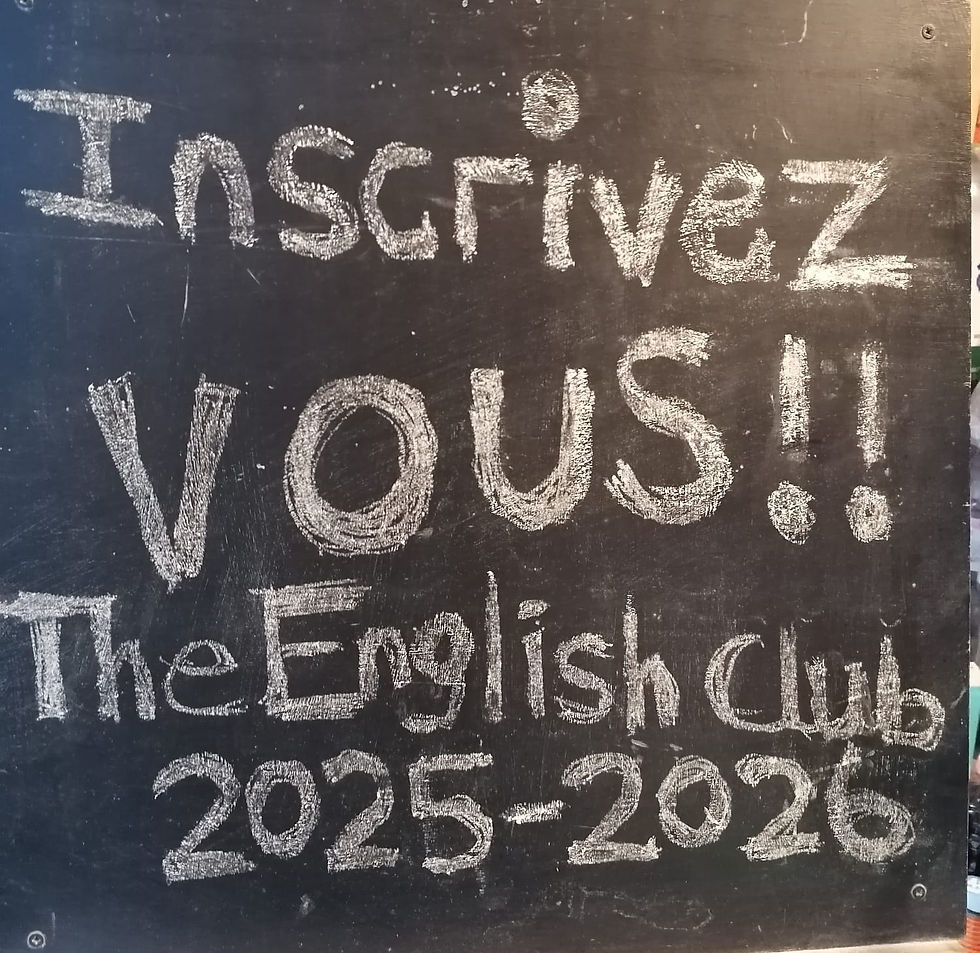 Inscrivez
vous!!
The English Club
2025-2026